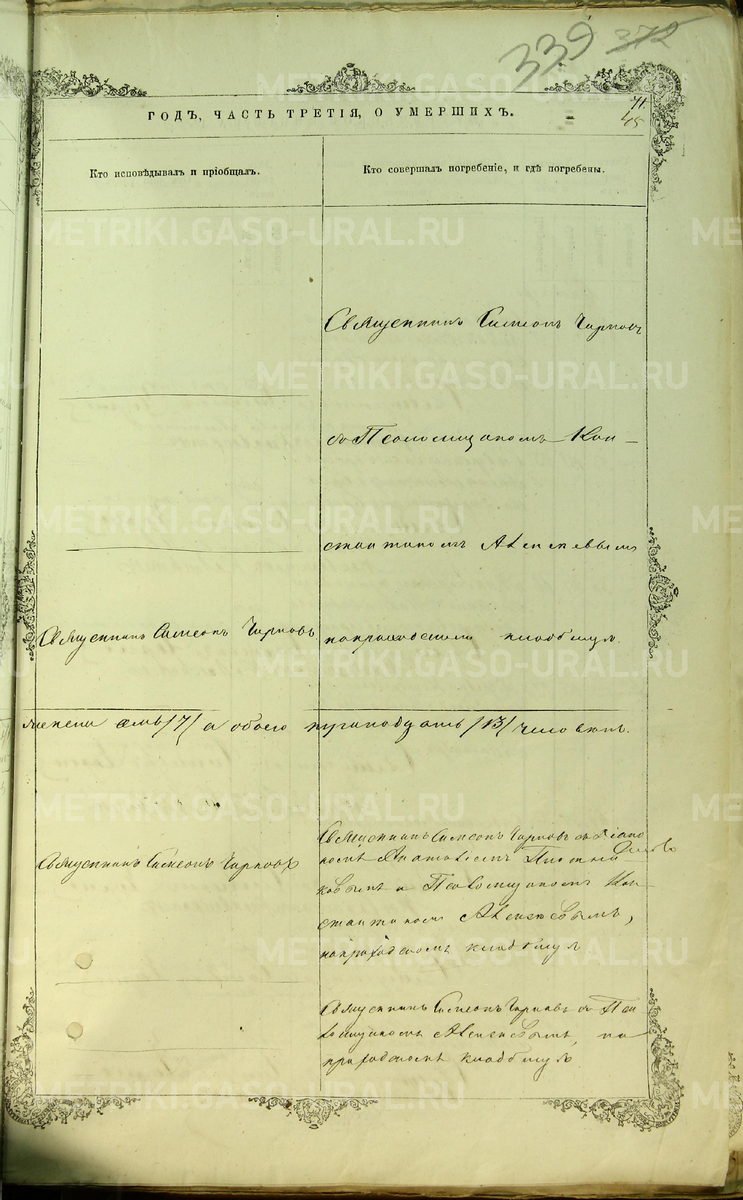 339 372
71
45
ГОДЪ, ЧАСТЬ ТРЕТІЯ, О УМЕРШИХЪ.
Кто исповѣдывалъ и пріобщалъ.
Кто совершалъ погребеніе, и гдѣ погребены.
Священникъ Симеонъ Чирковъ
съ Псаломщикомъ Кон-
стантиномъ
Священникъ Симеонъ Чирковъ
на приходскомъ кладбищѣ.
семь /7/ а обоего /13/ человѣкъ.
Священникъ Симеонъ Чирковъ
Священникъ Симеонъ Чирковъ съ Діако
номъ
и Псаломщикомъ Кон-
стантиномъ
на приходскомъ кладбищѣ
Священникъ Симеонъ Чирковъ съ Пса
ломщикомъ на
приходскомъ кладбищѣ
METRIKI.GASO-URAL.RU